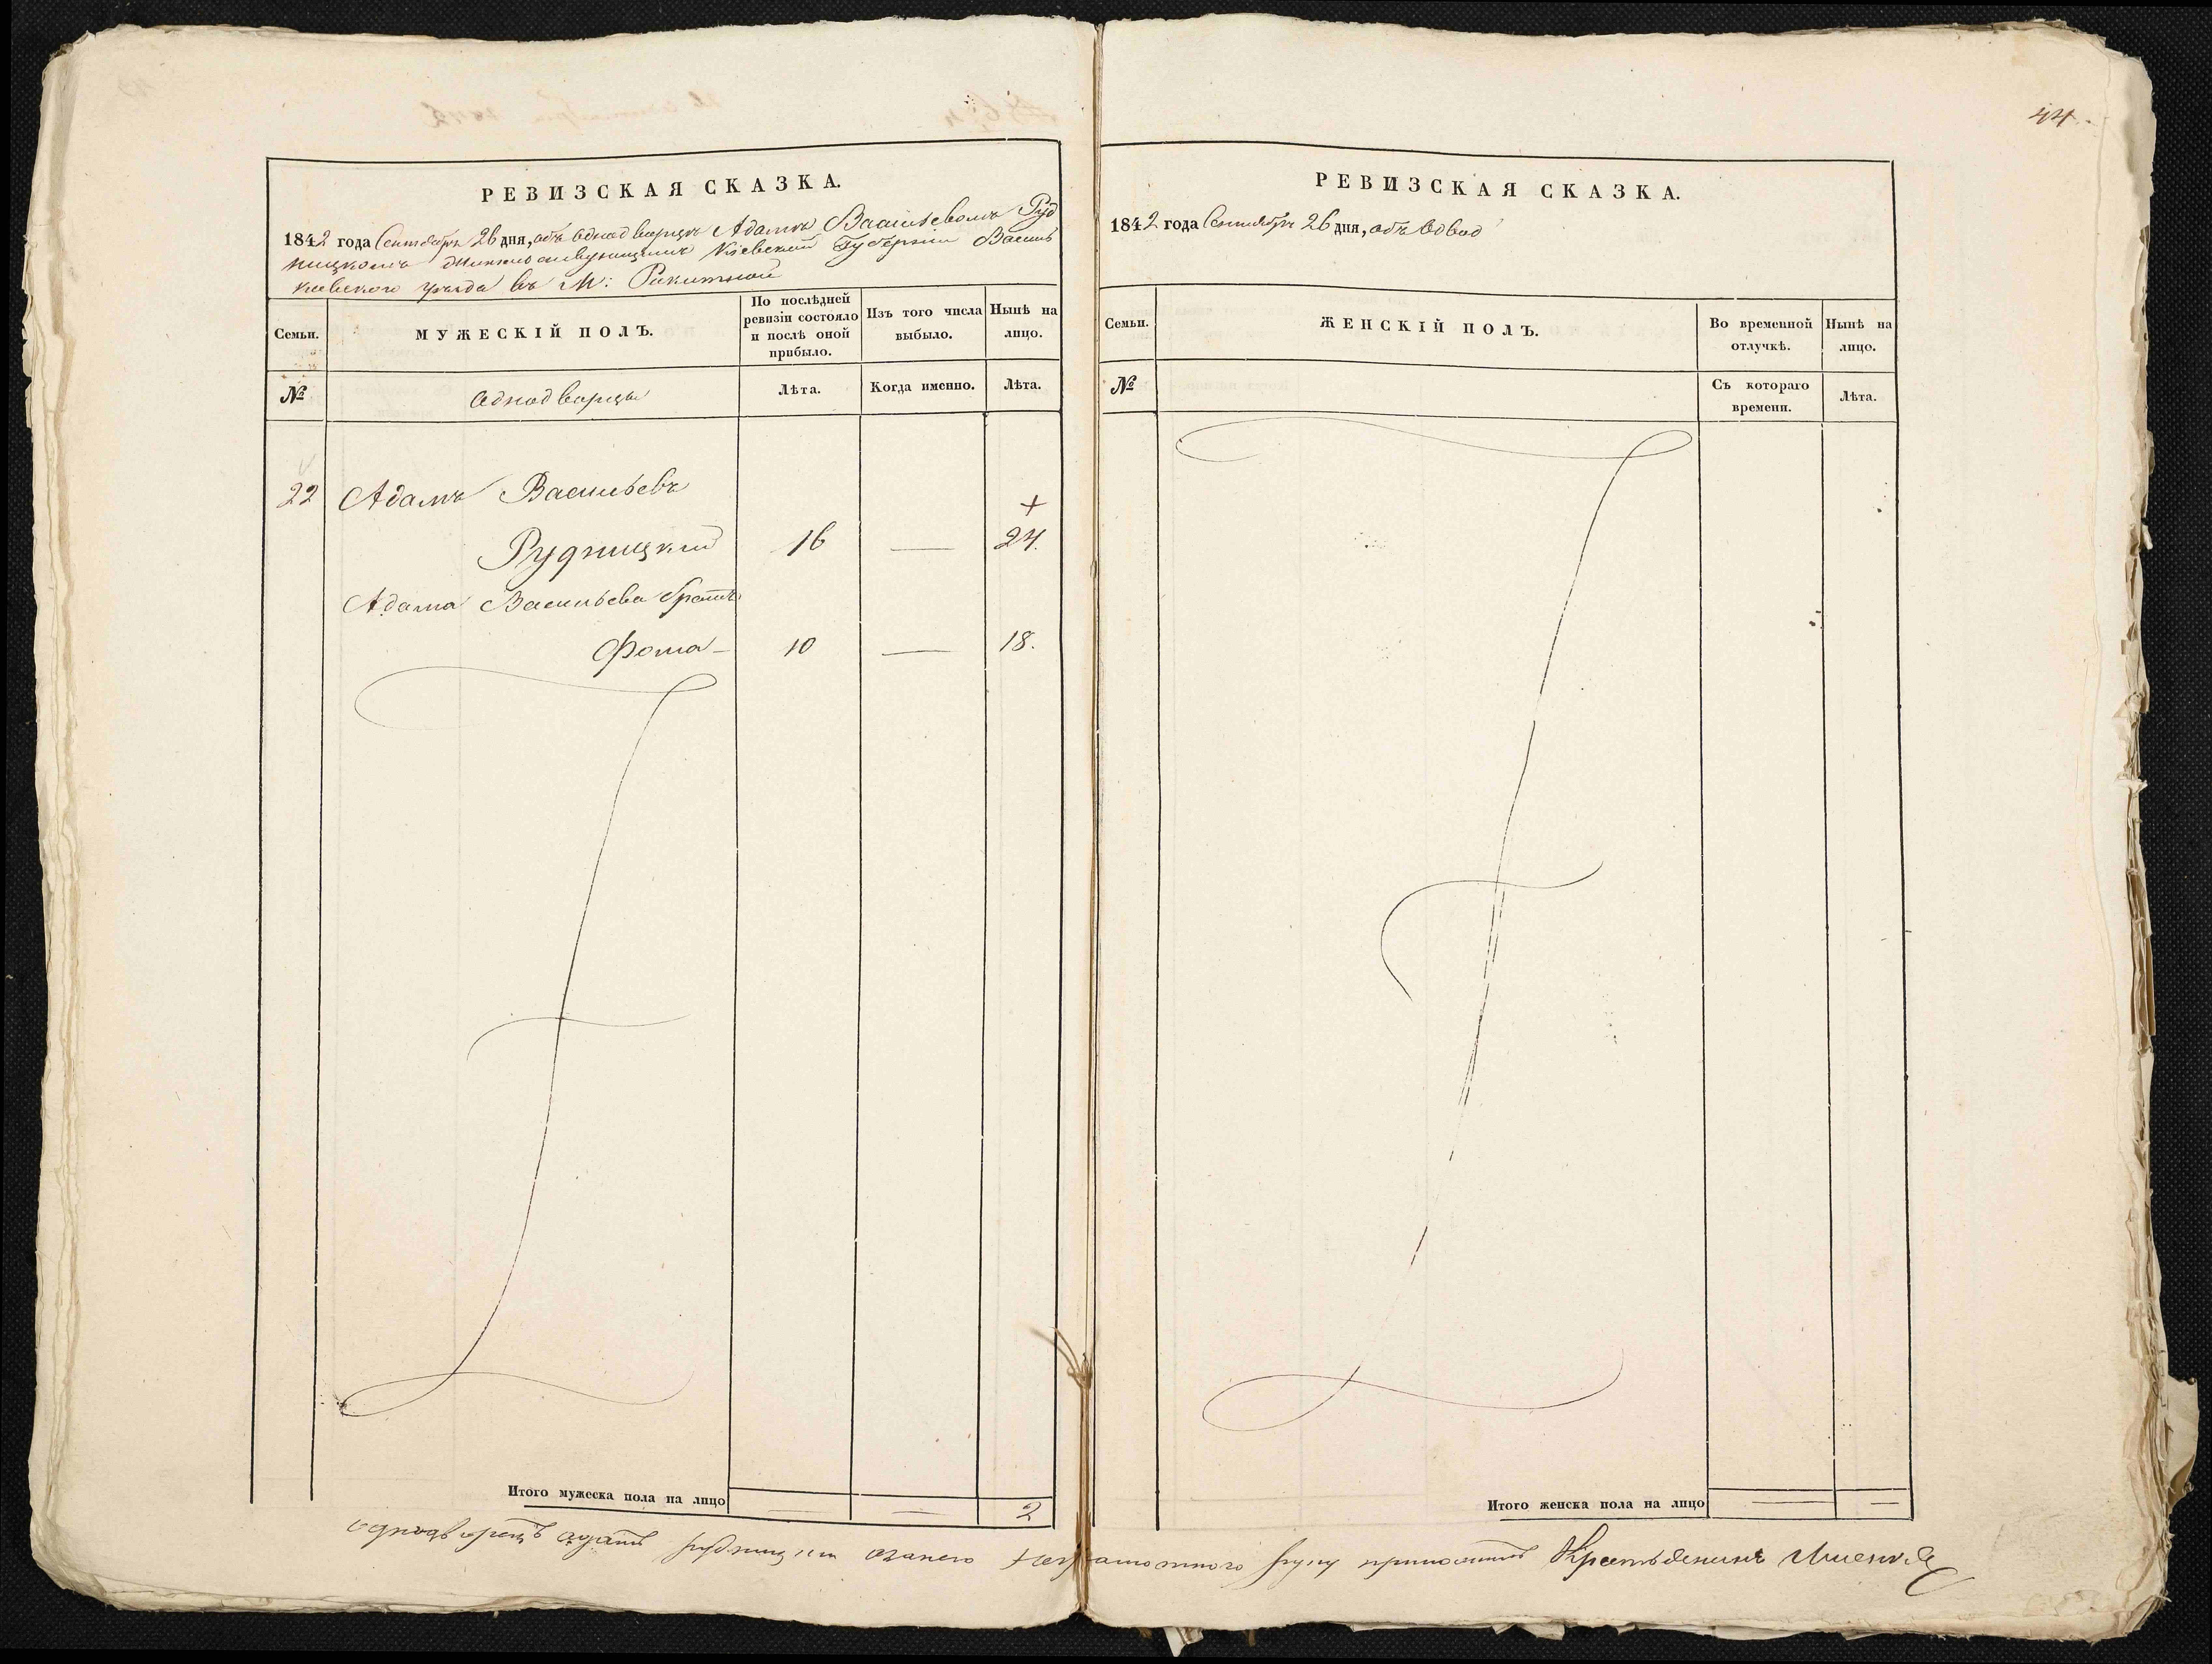 44
РЕВИЗСКАЯ СКАЗКА.
1842 года Сентября 26 дня, объ однодворцѣ Адамѣ Васильевомъ Руд
ницкомъ жительствующимъ Кіевской Губерніи Василь
ковского уѣзда въ М: Ракитной
Семьи.
МУЖЕСКІЙ ПОЛЪ.
По послѣдней ревизіи состояло и послѣ оной прибыло.
Изъ того числа выбыло.
Нынѣ на лицо.
№
Однодворцы
Лѣта.
Когда именно.
Лѣта.
22 Адамъ Васильевъ
+
Рудницкій 16 — 24.
Адама Васильева братъ
Фома — 10 — 18.
Итого мужеска пола на лицо — — 2
РЕВИЗСКАЯ СКАЗКА.
1842 года Сентября 26 дня, объ Одвод
Семьи.
ЖЕНСКІЙ ПОЛЪ.
Во временной отлучкѣ.
Нынѣ на лицо.
№
Съ котораго времени.
Лѣта.
Итого женска пола на лицо — —
однодворецъ адамъ рудницкий неграмотного руку